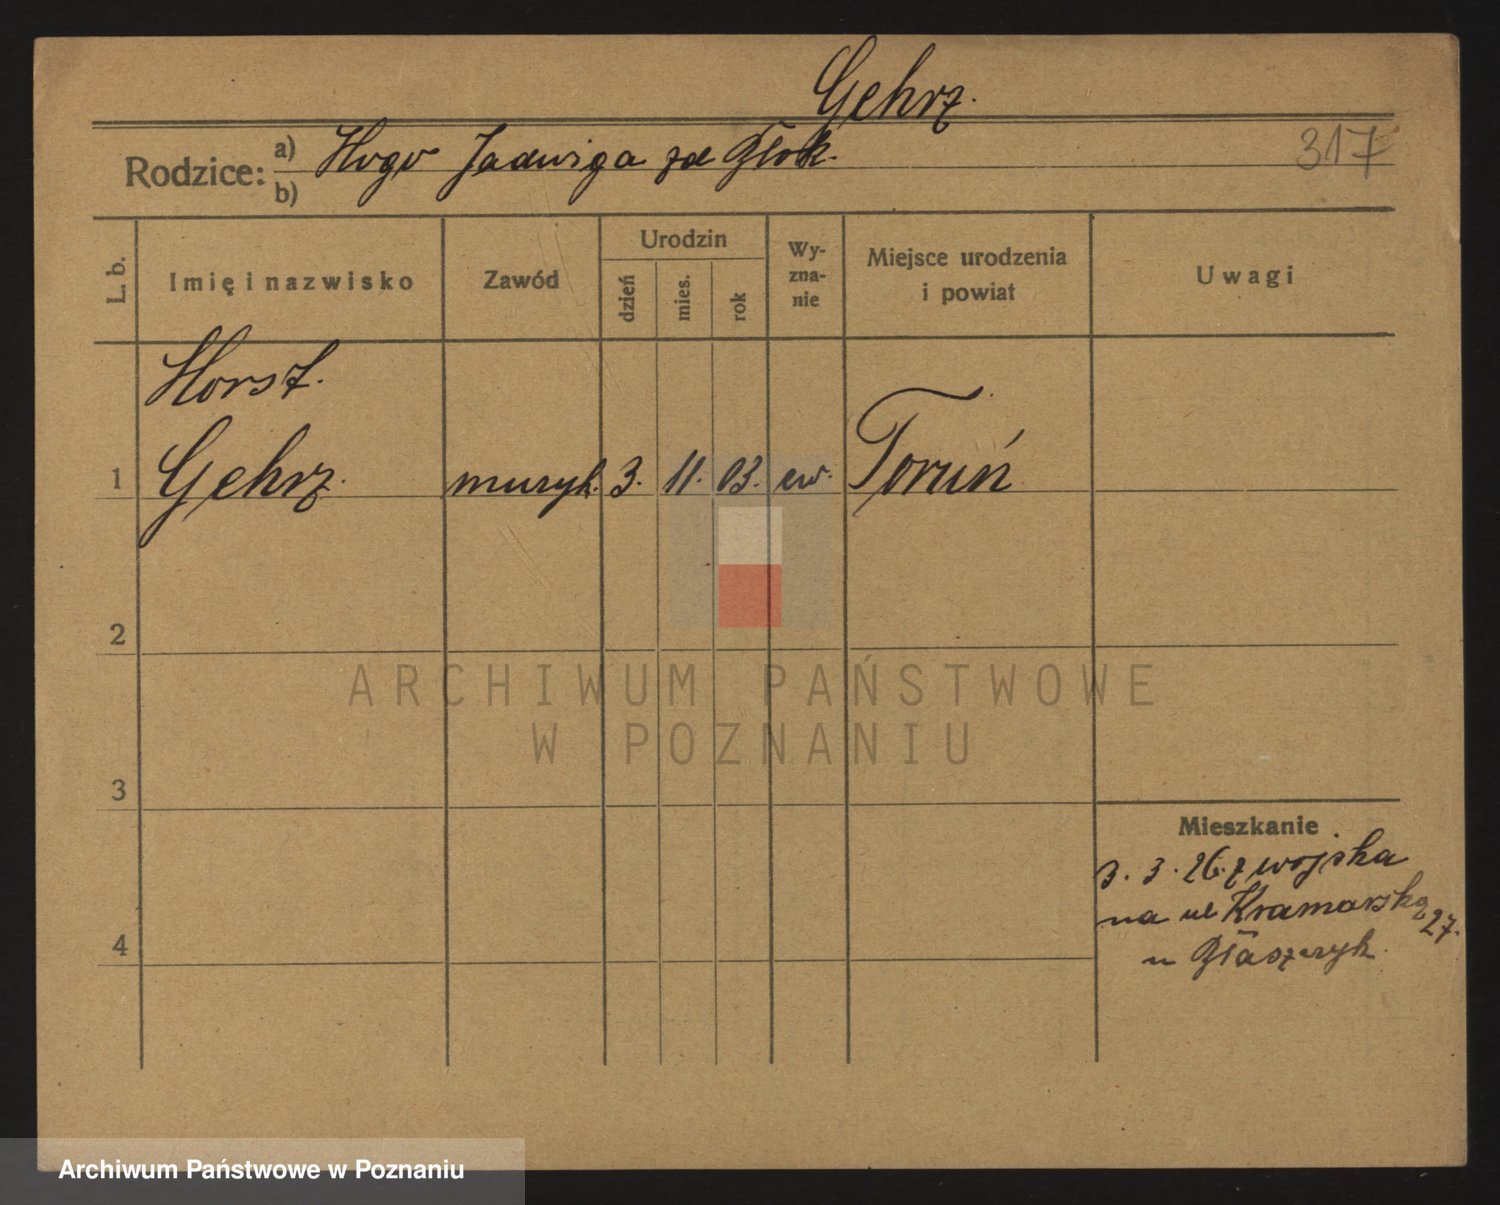 Gehrz.
317
Rodzice: a) b) Hugo Jadwiga zd Błok.
L. b.
Imię i nazwisko
Zawód
Urodzin
dzień
mies.
rok
Wy-
zna-
nie
Miejsce urodzenia
i powiat
Uwagi
Horst.
1 Gehrz. muzyk. 3. 11. 03. ew. Toruń
2
3
4
Mieszkanie
3. 3. 26. z wojska
na ul Kramarską 27.
u Błaszczyk.
ARCHIWUM PAŃSTWOWE
W POZNANIU
Archiwum Państwowe w Poznaniu